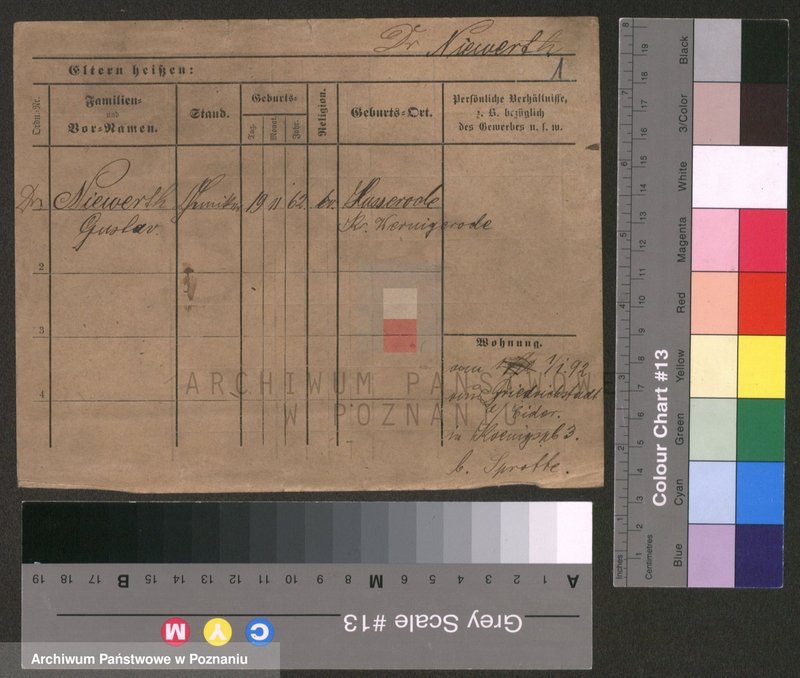 Dr Niewerth
1
Eltern heißen:
Ordn.-Nr.
Familien-
und
Vor-Namen.
Stand.
Geburts-
Tag.
Monat.
Jahr.
Religion.
Geburts-Ort.
Persönliche Verhältnisse,
z. B. bezüglich
des Gewerbes u. s. w.
Dr. Niewerth Chemiker 19 11 62 ev. Hasserode
Gustav. Kr. Wernigerode
2
3
4
Wohnung.
vom 1/1 92
von Friedrichstadt
a/ Eider.
in Koenigspl 3.
b. Sprotte.
ARCHIWUM PAŃSTWOWE
W POZNANIU
Inches
Centimetres
1 2 3 4 5 6 7 8
1 2 3 4 5 6 7 8 9 10 11 12 13 14 15 16 17 18 19
Colour Chart #13
Black
3/Color
White
Magenta
Red
Yellow
Green
Cyan
Blue
A 1 2 3 4 5 6 M 8 9 10 11 12 13 14 15 B 17 18 19
Grey Scale #13
M Y C
Archiwum Państwowe w Poznaniu